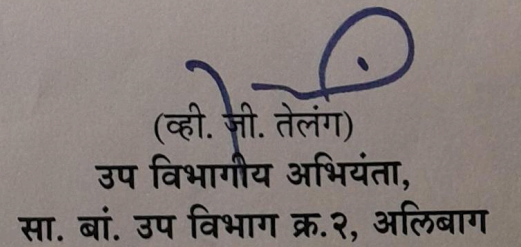 (व्ही. जी. तेलंग)
उप विभागीय अभियंता,
सा. बां. उप विभाग क्र.२, अलिबाग